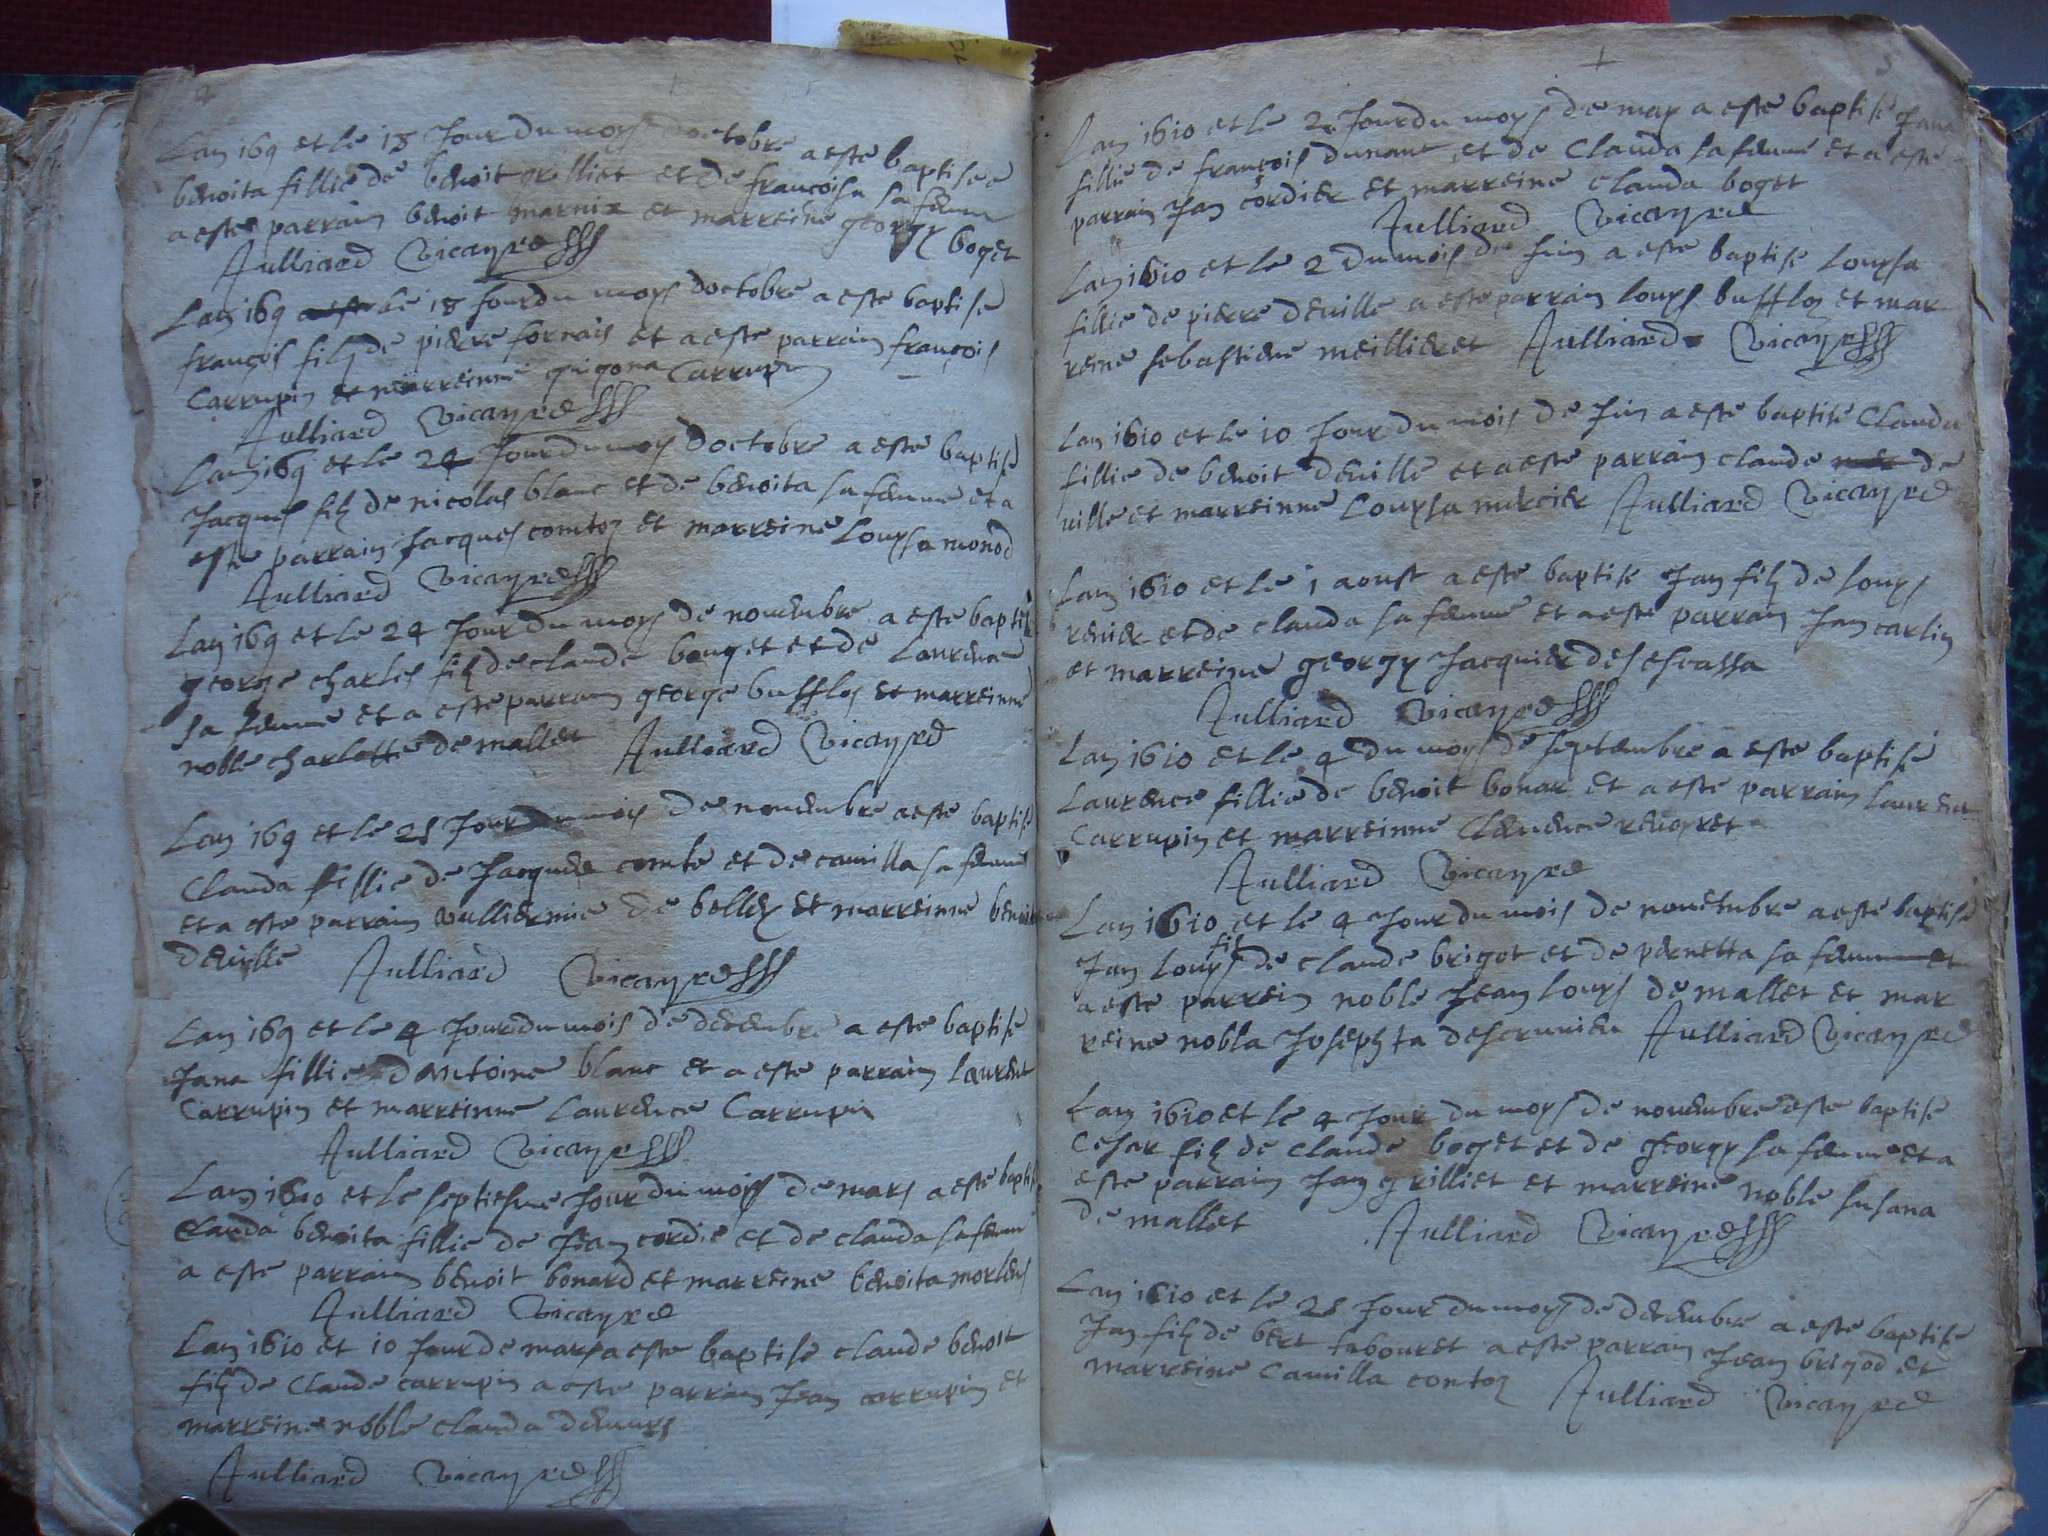 Lan 169 et le 18 Jour du moys doctobre a este baptisee
benoita fillie de benoit grilliet et de françoisa sa femme
a este parrain benoit marnix et marreine georgy boget
Julliard vicayre
Lan 169 le 18 Jour du moys doctobre a este baptise
françois filz de pierre fornais et a este parrain françois
Carrupin et marreinne guigona Carrupin
Julliard vicayre
Lan 169 et le 24 Jour du moys doctobre a este baptise
Jacques filz de nicolas blanc et de benoita sa femme et a
este parrain Jacques comtoz et marreine Louysa monod
Julliard vicayre
Lan 169 et le 24 Jour du moys de novembre a este baptise
george charles filz de claude bouget et de Laurence
sa femme et a este parrain george buffloz et marreinne
noble charlotte de mallet Julliard vicayre
Lan 169 et le 28 Jour du mois de novembre a este baptise
Clauda fillie de Jacques comte et de camilla sa femme
et a este parrain vulliermie de belley et marreinne
deville Julliard vicayre
Lan 169 et le 4 Jour du mois de decembre a este baptise
Jana fillie dantoine blanc et a este parrain Laurent
Carrupin et marreinne Laurence Carrupin
Julliard vicayre
Lan 1610 et le septiesme Jour du moys de mars a este baptise
Clauda benoita fillie de Jean cordie et de clauda sa femme
a este parrain benoit bonard et marreine benoita morlens
Julliard vicayre
Lan 1610 et 10 Jour de mars a este baptise claude benoit
filz de Claude carrupin a este parrain Jean carrupin et
marreine noble clauda
Julliard vicayre
Lan 1610 et le 2 Jour du moys de may a este baptise Jana
fillie de françois dunant et de Clauda sa femme et a este
parrain Jan cordier et marreine clauda boget
Julliard vicayre
Lan 1610 et le 2 du mois de Juin a este baptise Louysa
fillie de pierre deville a este parrain louys buffloz et mar
reine sebastiene meillieret Julliard vicayre
Lan 1610 et le 10 Jour du mois de Juin a este baptise Clauda
fillie de benoit deville et a este parrain claude de
ville et marreinne Louysa mercier Julliard vicayre
Lan 1610 et le 1 aoust a este baptise Jan filz de louys
revier et de clauda sa femme et a este parrain Jan carlin
et marreine georgy Jacquier des escassa
Julliard vicayre
Lan 1610 et le 4 du moys de septembre a este baptise
Laurence fillie de benoit bonar et a este parrain Laurent
Carrupin et marreinne Clemence
Julliard vicayre
Lan 1610 et le 4 Jour du mois de novembre a este baptise
Jan louys filz de claude brigot et de pernetta sa femme et
a este parrein noble Jean louys de mallet et mar
reine nobla Josephta Julliard vicayre
Lan 1610 et le 4 Jour du moys de novembre este baptise
Cesar filz de claude boget et de georgy sa femme et a
este parrain Jan grilliet et marreine noble susana
de mallet Julliard vicayre
Lan 1610 et le 28 Jour du moys de decembre a este baptise
Jan filz de bert tabouret a este parrain Jean brigod et
marreine Camilla contoz Julliard vicayre